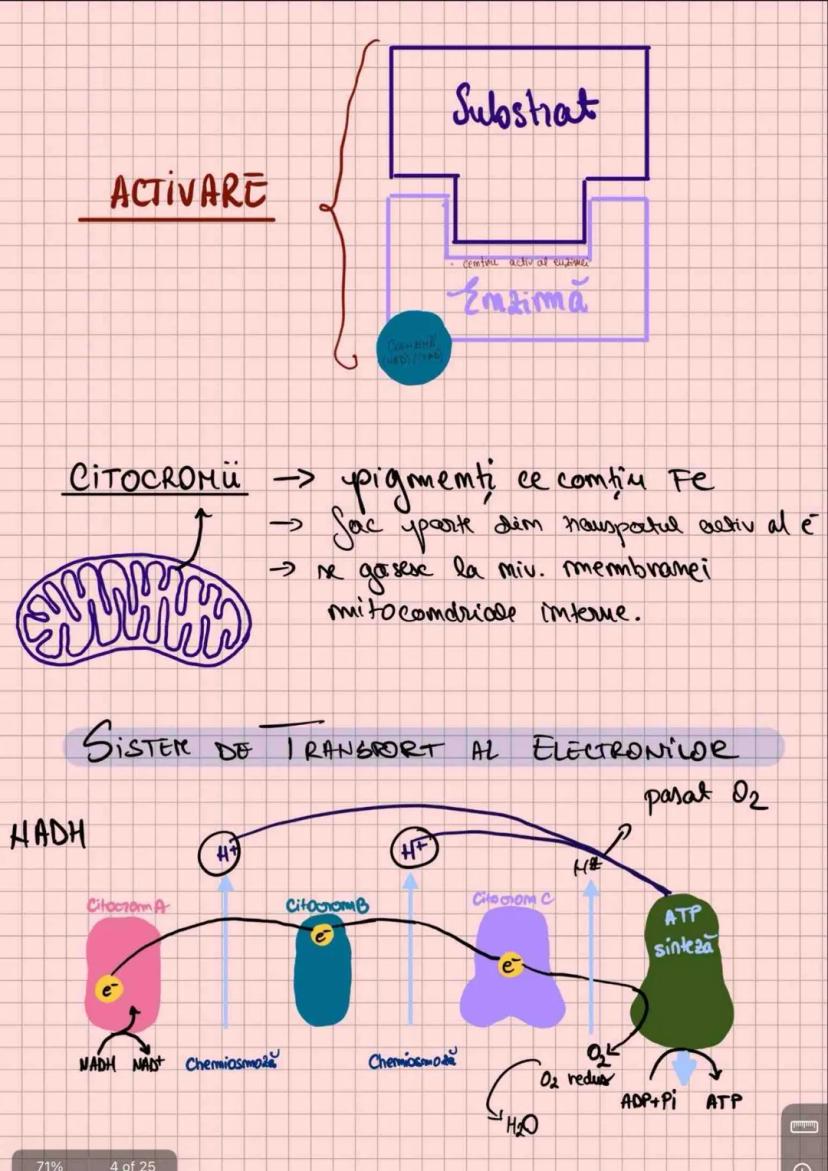 Substrat
ACTIVARE
centru activ al enzimei
Enzimă
CITOCROMII → pigmenți ce conțin Fe
→ fac parte din transportul activ al e⁻
→ se găsesc la niv. membranei
mitocondriale interne.
SISTEM DE TRANSPORT AL ELECTRONILOR
pasat O2
NADH
H+
H+
H+
Citocrom A
Citocrom B
Citocrom C
ATP
sinteză
e-
e-
e-
NADH NAD+
Chemiosmoză
Chemiosmoză
O2
O2 redus
H2O
ADP+Pi ATP
71%
4 of 25